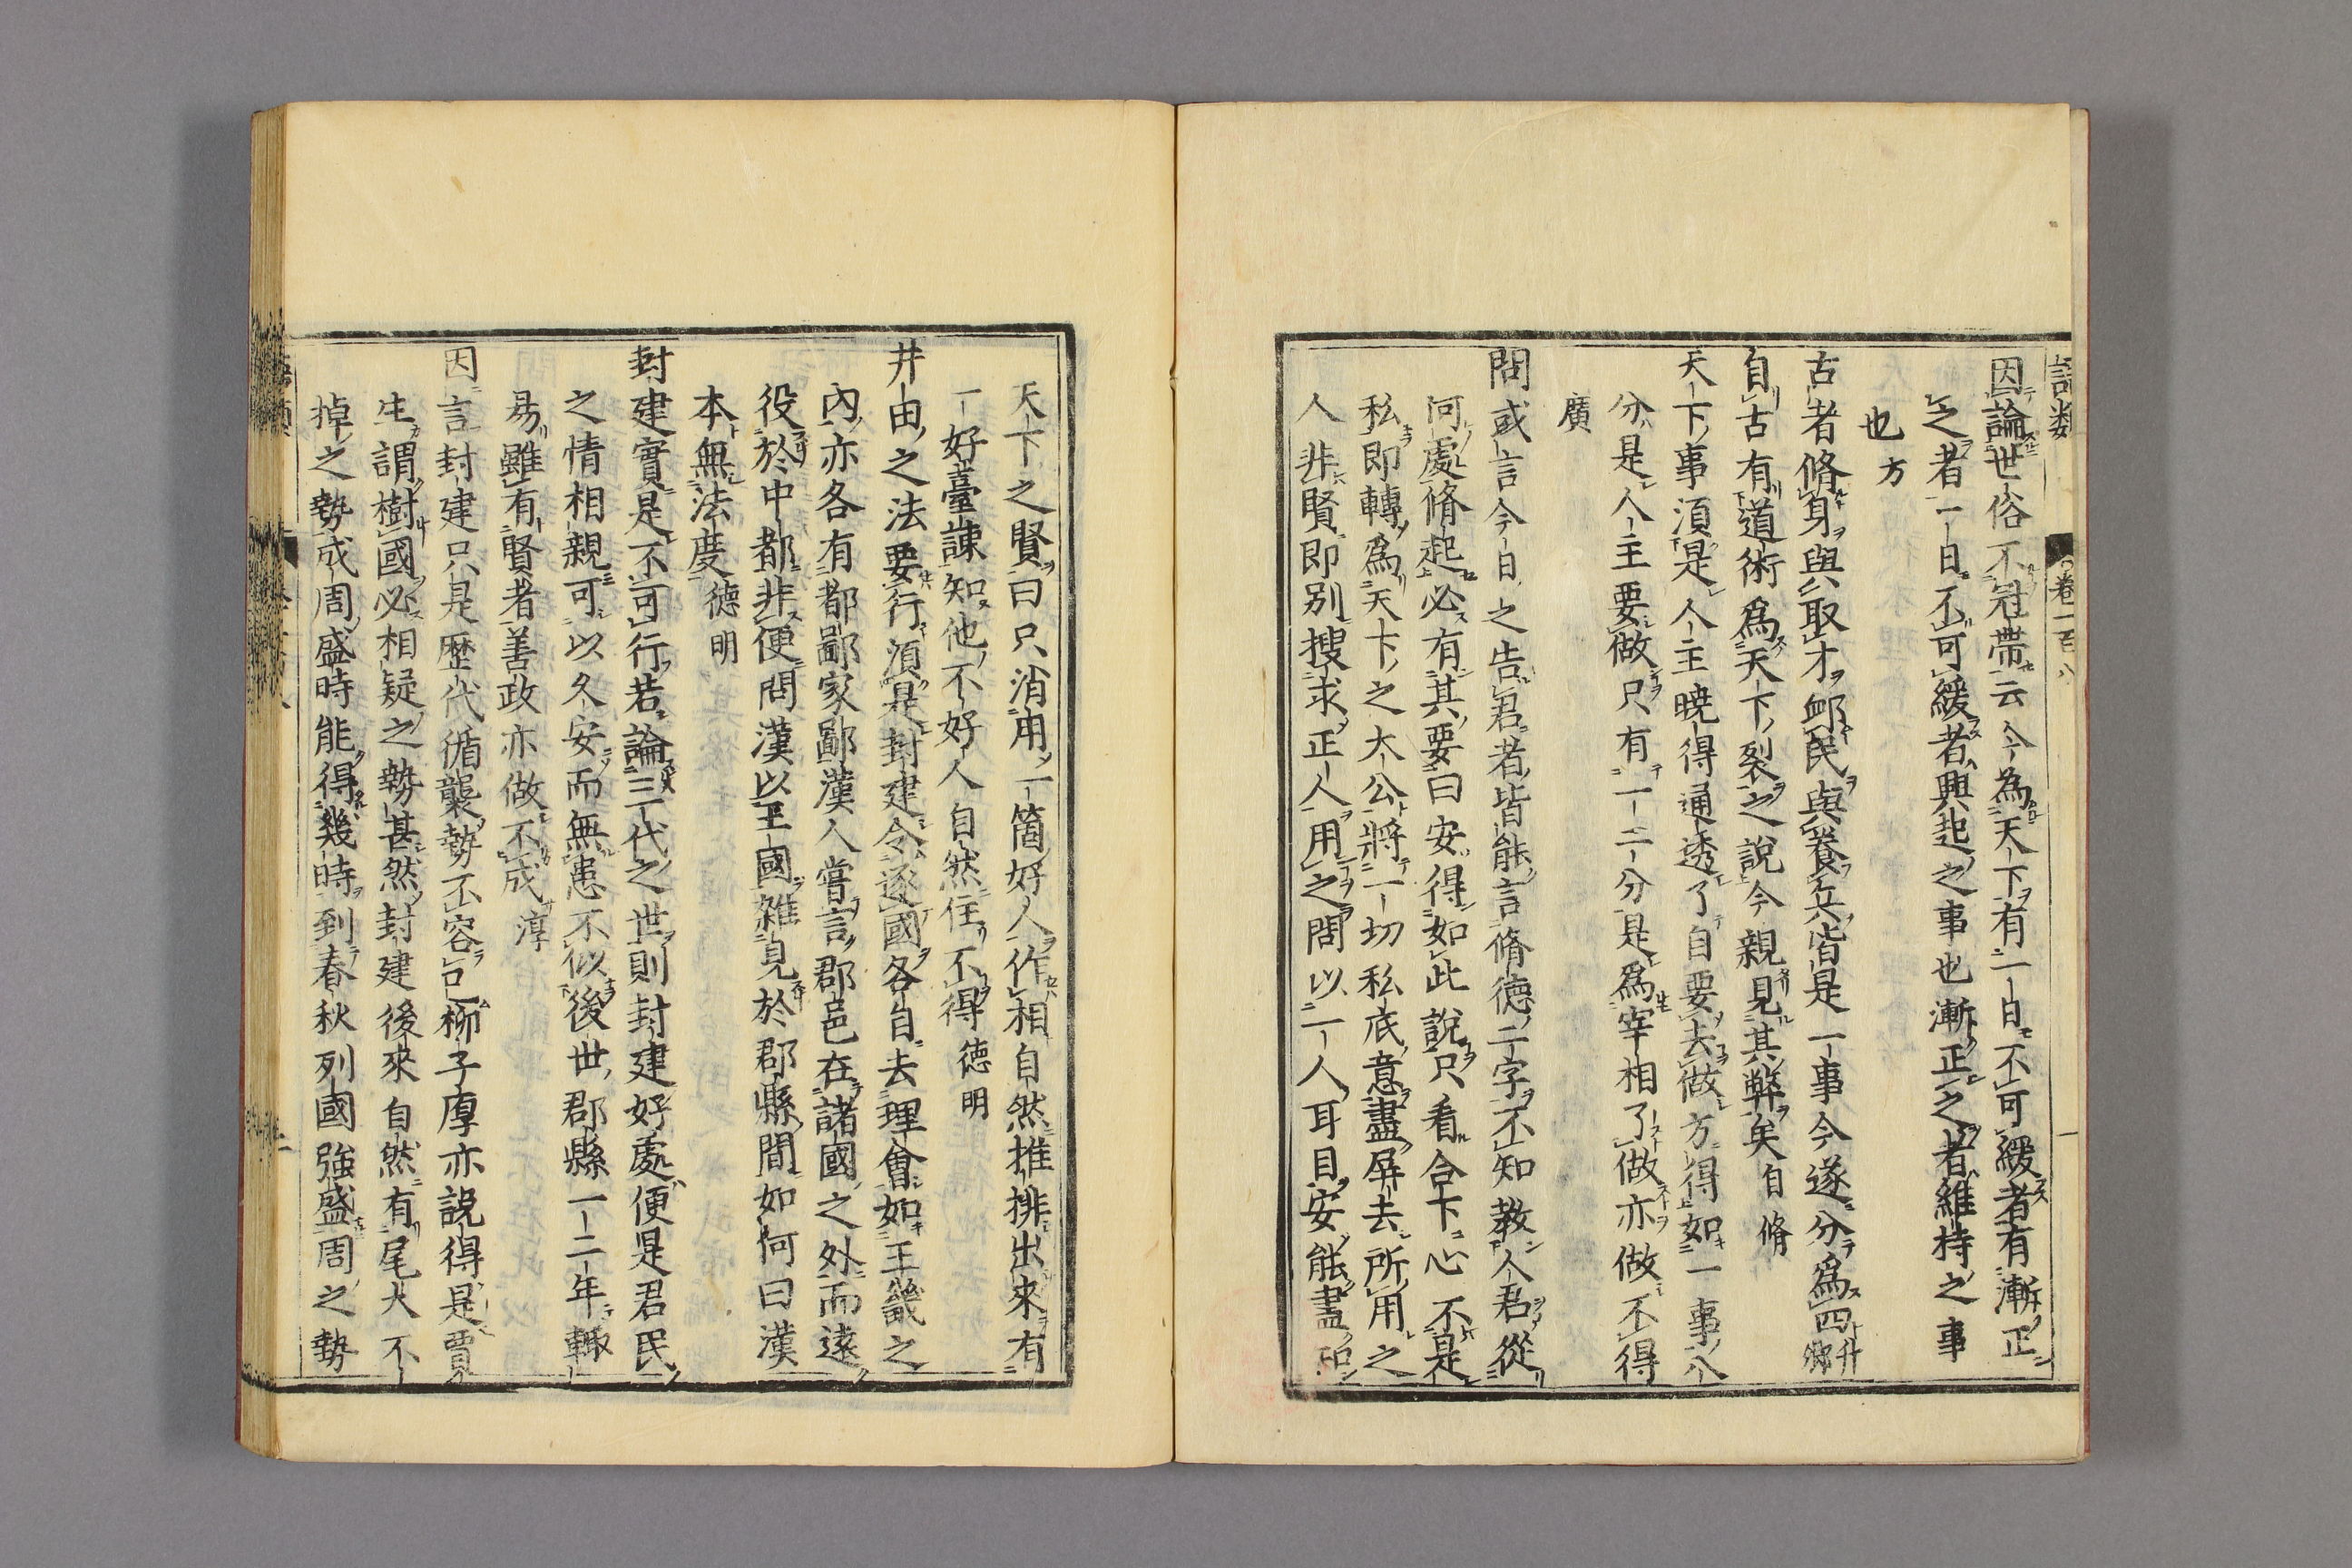 語類
卷一百八
一
因論世俗不冠帶云今為天下有一日不可緩者有漸正
之者一日不可緩者興起之事也漸正之者維持之事
也方
古者脩身與取才卹民與養兵皆是一事今遂分為四升卿
自古有道術為天下裂之說今親見其弊矣自脩
天下事須是人主曉得通透了自要去做方得如一事八
分是人主要做只有一二分是為宰相了做亦做不得
廣
問或言今日之告君者皆能言脩德二字不知教人君從
何處脩起必有其要曰安得如此說只看合下心不是
私即轉為天下之大公將一切私底意盡屏去所用之
人非賢即別搜求正人用之問以一人耳目安能盡知
天下之賢曰只消用一箇好人作相自然推排出來有
一好臺諫知他不好人自然住不得德明
井田之法要行須是封建令逐國各自去理會如王畿之
內亦各有都鄙家鄙漢人嘗言郡邑在諸國之外而遠
役於中都非便問漢以王國雜見於郡縣間如何曰漢
本無法度德明
封建實是不可行若論三代之世則封建好處便是君民
之情相親可以久安而無患不似後世郡縣一二年輒
易雖有賢者善政亦做不成淳
因言封建只是歷代循襲勢不容已柳子厚亦說得是賈
生謂樹國必相疑之勢甚然封建後來自然有尾大不
掉之勢成周盛時能得幾時到春秋列國強盛周之勢